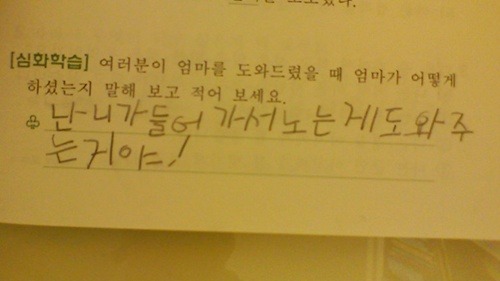 [심화학습] 여러분이 엄마를 도와드렸을 때 엄마가 어떻게
하셨는지 말해 보고 적어 보세요.
난 니가 들어 가서 노는 게 도와 주
는 거야!